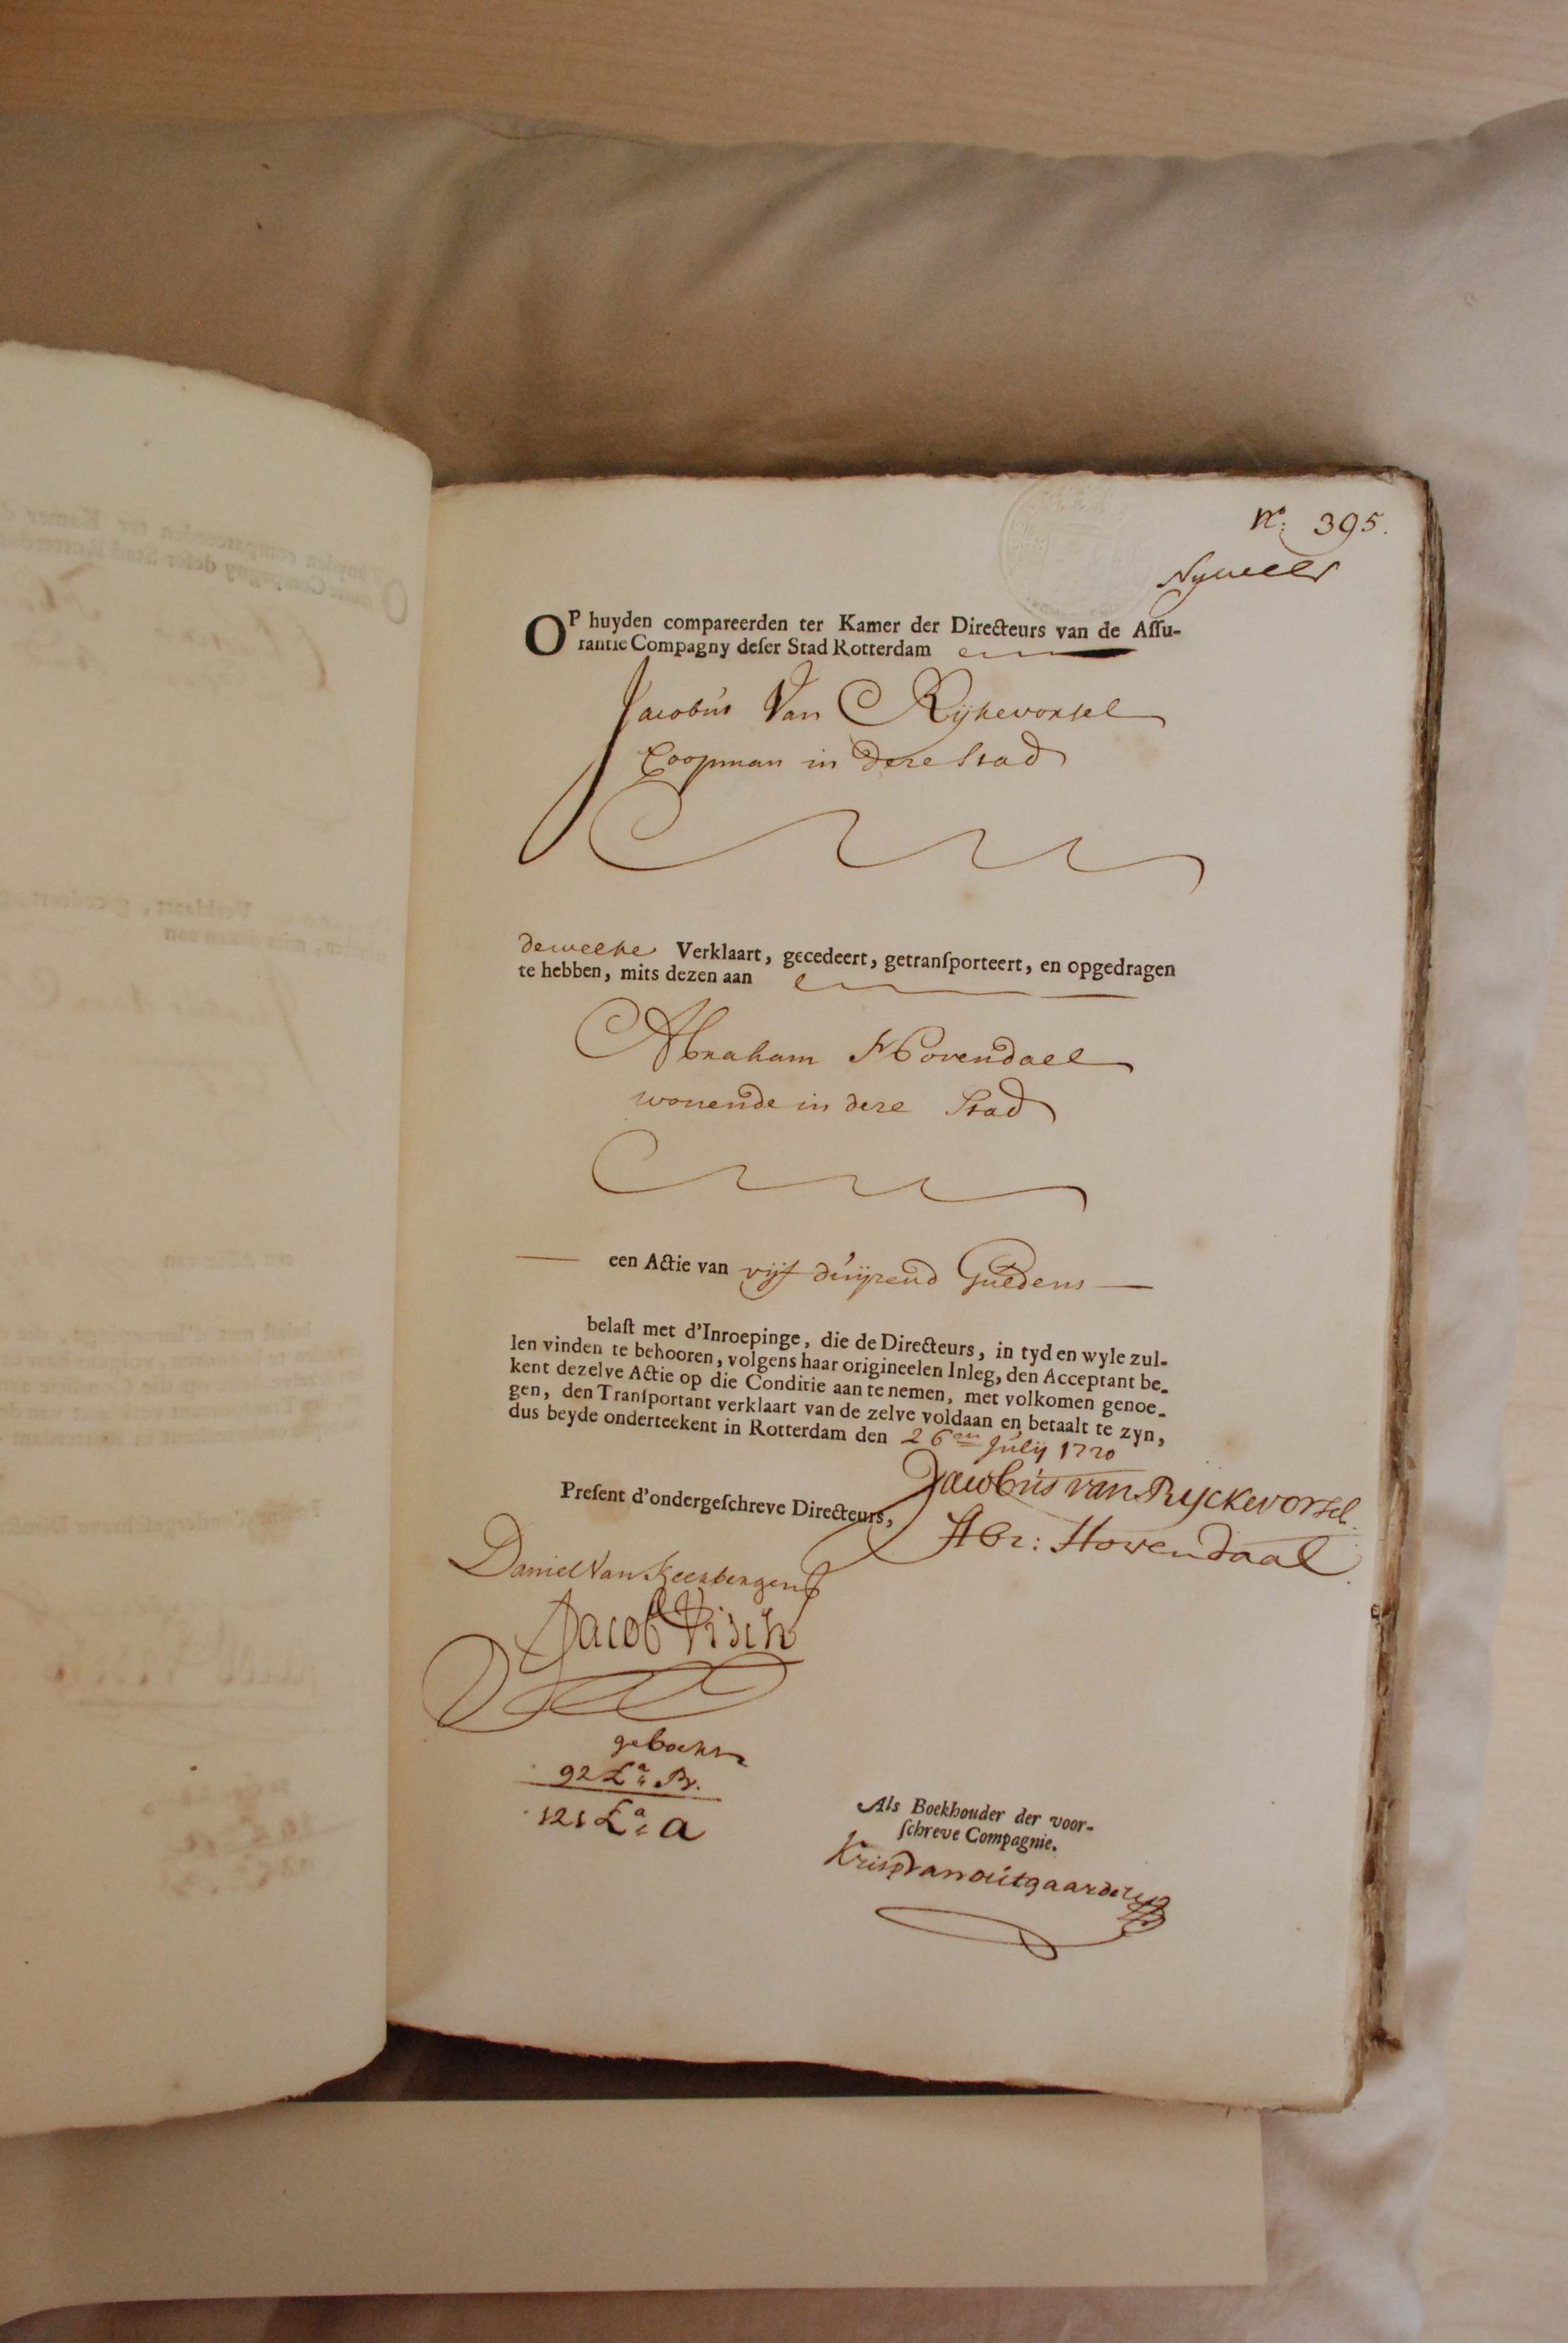 No: 395.
OP huyden compareerden ter Kamer der Directeurs van de Aſſu-
rantie Compagny deſer Stad Rotterdam
Jacobus Van Rijkevorsel
Coopman in deze Stad
dewelke Verklaart, gecedeert, getranſporteert, en opgedragen
te hebben, mits dezen aan
Abraham Hovendael
wonende in deze Stad
een Actie van vijf duijzend Guldens
belaſt met d'Inroepinge, die de Directeurs, in tyd en wyle zul-
len vinden te behooren, volgens haar origineelen Inleg, den Acceptant be-
kent dezelve Actie op die Conditie aan te nemen, met volkomen genoe-
gen, den Tranſportant verklaart van de zelve voldaan en betaalt te zyn,
dus beyde onderteekent in Rotterdam den 26en Julij 1720
Jacobus van Ryckevorsel
Abr: Hovendaal
Preſent d'ondergeſchreve Directeurs,
Daniel Van Keerbergen
Jacob Visch
geboekt
92 La: B.
121 La: a
Als Boekhouder der voor-
ſchreve Compagnie.
Krisp van outgaarden